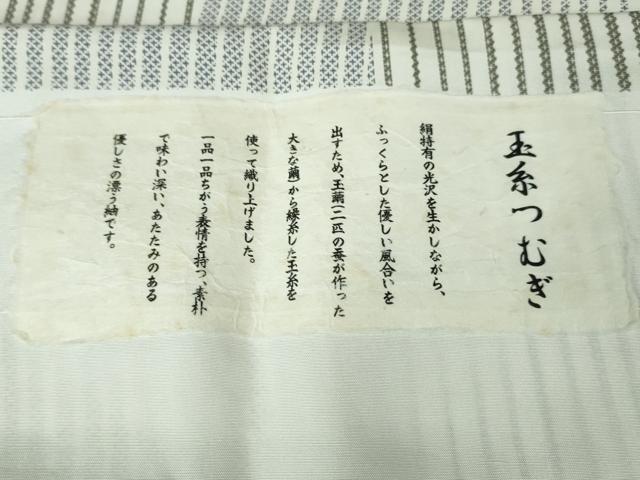 玉糸つむぎ
絹特有の光沢を生かしながら、
ふっくらとした優しい風合いを
出すため、玉繭(二匹の蚕が作った
大きな繭)から繰糸した玉糸を
使って織り上げました。
一品一品ちがう表情を持つ、素朴
で味わい深い、あたたみのある
優しさの漂う紬です。